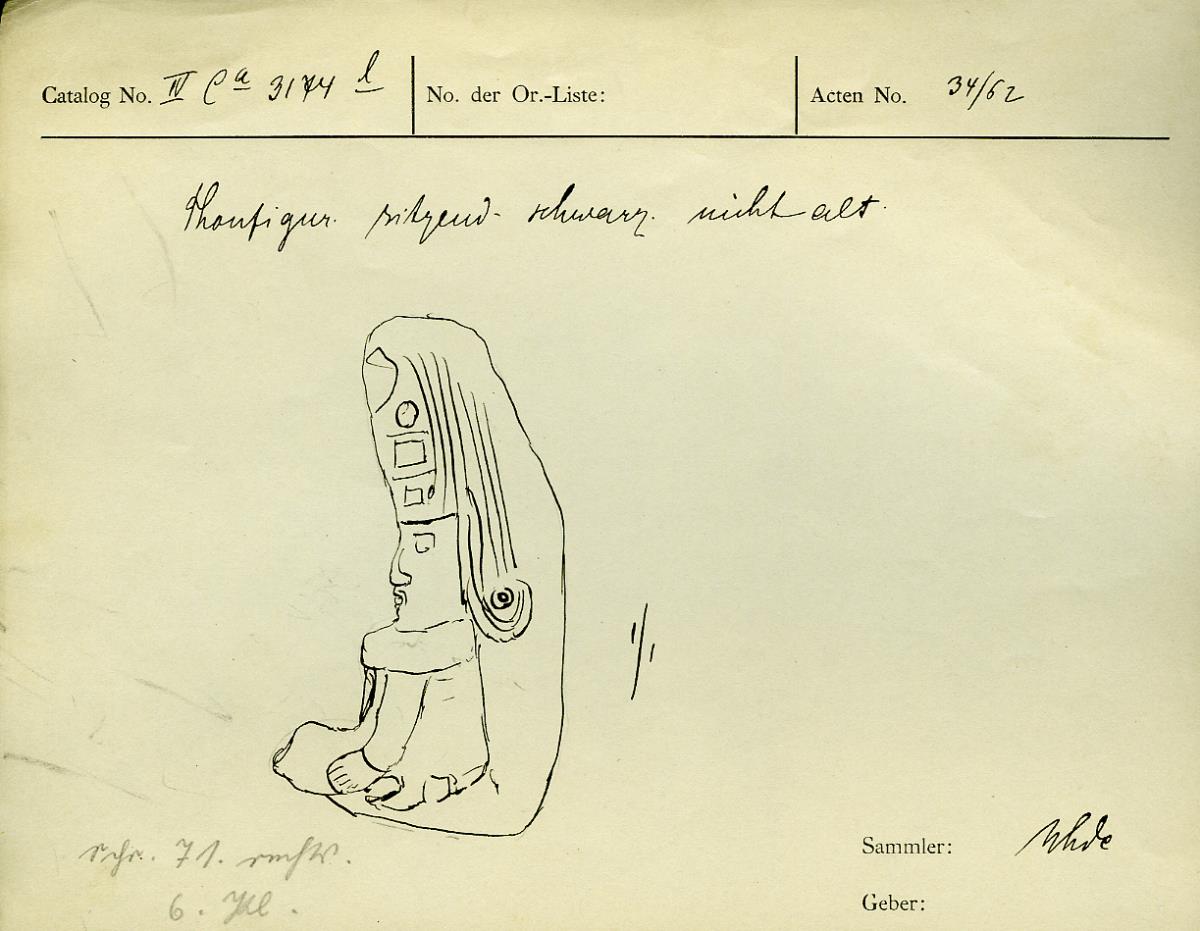 Catalog No. IV Ca 3174 l No. der Or.-Liste: Acten No. 34/62
Thonfigur. sitzend- schwarz. nicht alt.
1/1
Schr. 71. rechts.
Sammler: Uhde
6.
Geber: